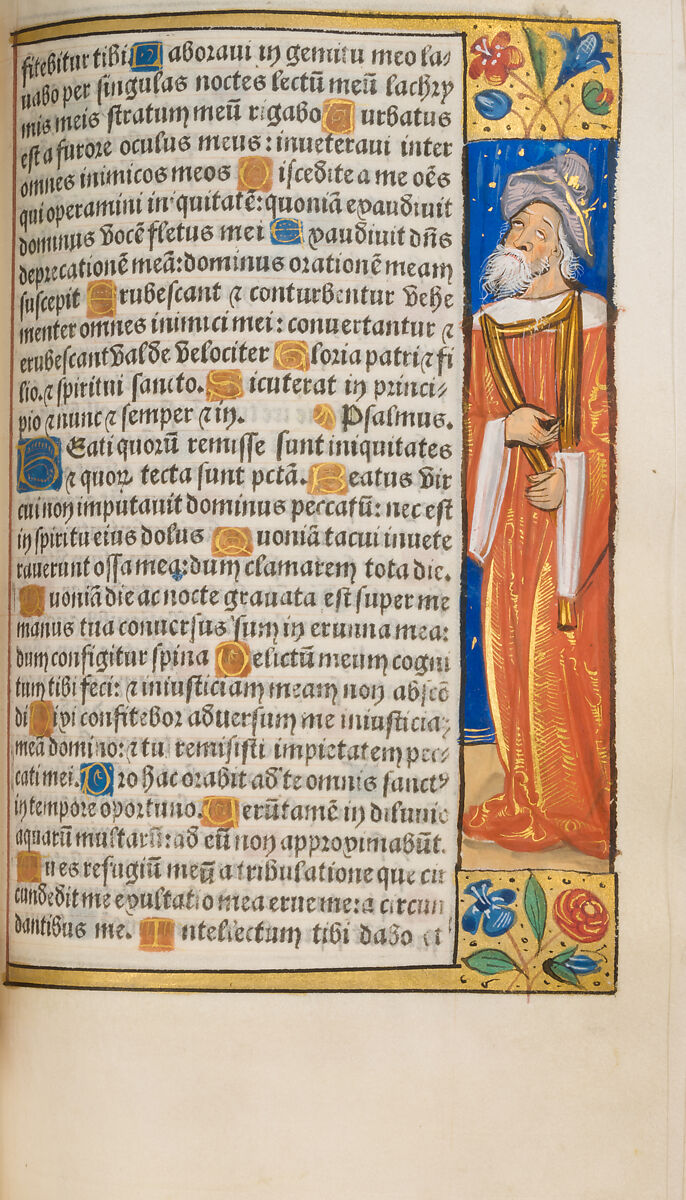 fitebitur tibi L aboraui in gemitu meo la⸗
uabo per singulas noctes lectū meū lachry
mis meis stratum meū rigabo T urbatus
est a furore oculus meus: inueteraui inter
omnes inimicos meos D iscedite a me oēs
qui operamini iniquitatē: quoniā exaudiuit
dominus vocē fletus mei E xaudiuit dn̄s
deprecationē meā: dominus orationē meam
suscepit E rubescant ⁊ conturbentur vehe
menter omnes inimici mei: conuertantur ⁊
erubescant valde velociter G loria patri ⁊ fi
lio. ⁊ spiritui sancto. S icut erat in princi⸗
pio ⁊ nunc ⁊ semper ⁊ in. Psalmus.
B Eati quorū remisse sunt iniquitates
⁊ quoꝝ tecta sunt pctā. B eatus vir
cui non imputauit dominus peccatū: nec est
in spiritu eius dolus Q uoniā tacui inuete
rauerunt ossa mea: dum clamarem tota die.
Q uoniā die ac nocte grauata est super me
manus tua conuersus sum in erunna mea:
dum configitur spina D elictū meum cogni
tum tibi feci: ⁊ iniusticiam meam non abscō
di D ixi confitebor aduersum me iniusticiā
meā domino: ⁊ tu remisisti impietatem pec⸗
cati mei. P ro hac orabit ad te omnis sanctꝰ
in tempore oportuno. U erūtamē in diluuio
aquarū multarū: ad eū non approximabūt.
T u es refugiū meū a tribulatione que cir
cundedit me exultatio mea erue me: a circun
dantibus me. I ntellectum tibi dabo et